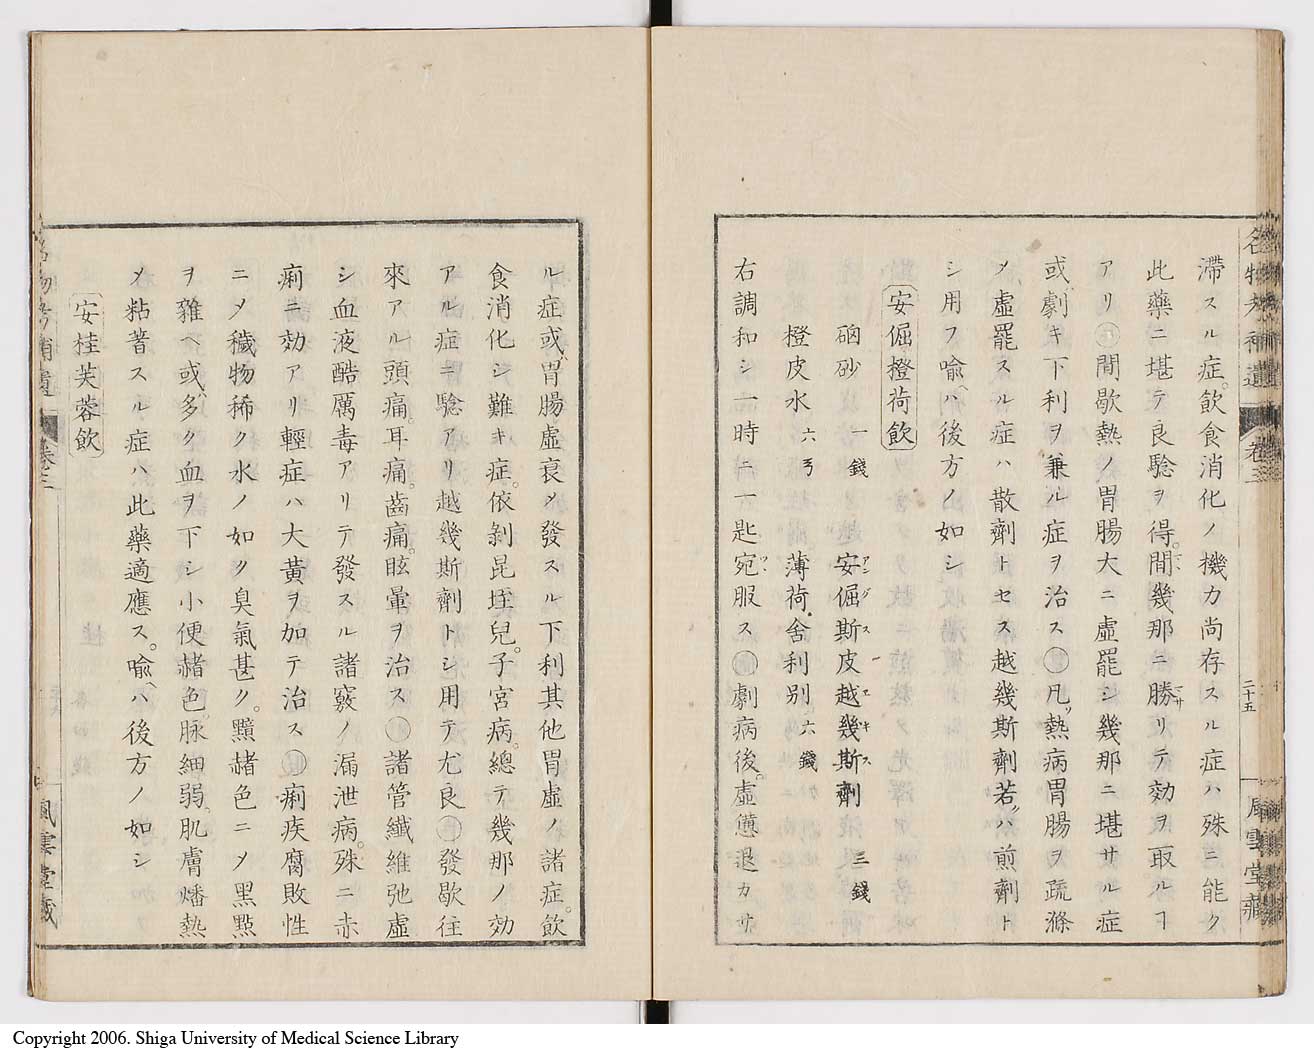 滯スル症。飮食消化ノ機力尚存スル症ハ殊ニ能ク
此藥ニ堪テ良驗ヲ得。間幾那ニ勝リテ効ヲ取ルヿ
アリ 間歇熱ノ胃腸大ニ虛罷シ幾那ニ堪サル症
或劇キ下利ヲ兼ル症ヲ治ス 凡熱病胃腸ヲ疏滌
メ虛罷スル症ハ散劑トセス越幾斯劑若ハ煎劑ト
シ用フ喩ハ後方ノ如シ
安倔橙荷飮
硇砂 一錢 安倔斯皮越幾斯劑 三錢
アングスエキス
橙皮水 六 薄荷舍利別 六錢
右調和シ一時ニ一匙宛服ス 劇病後。虛憊退カサ
名物考補遺 卷三 二十五 風雲堂藏
ル症或胃腸虛衰メ發スル下利其他胃虛ノ諸症。飮
食消化シ難キ症。依剝昆垤兒。子宮病。總テ幾那ノ効
アル症ニ驗アリ越幾斯劑トシ用テ尤良 發歇往
來アル頭痛。耳痛。齒痛。眩暈ヲ治ス 諸管纖維弛虛
シ血液酷厲毒アリテ發スル諸竅ノ漏泄病。殊ニ赤
痢ニ効アリ輕症ハ大黃ヲ加テ治ス 痢疾腐敗性
ニメ穢物稀ク水ノ如ク臭氣甚ク。黯赭色ニメ黑㸃
ヲ雜ヘ或多ク血ヲ下シ小便赭色。脉細弱。肌膚燔熱
メ粘著スル症ハ此藥適應ス。喩ハ後方ノ如シ
安桂芙蓉飮
名物考補遺 卷三 風雲堂藏
Copyright 2006. Shiga University of Medical Science Library